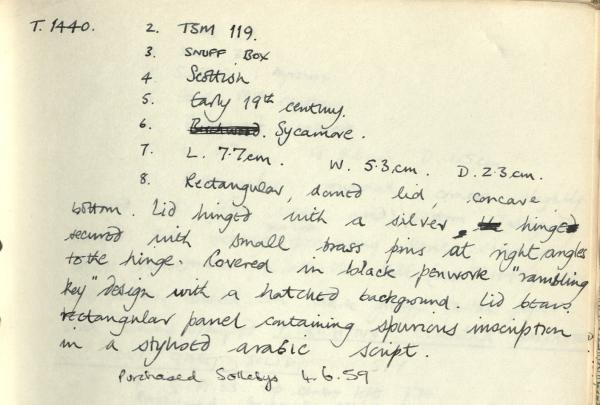 T. 1440. 2. TSM 119.
3. SNUFF BOX
4 Scottish
5. Early 19th century.
6. Sycamore.
7. L. 7.7.cm. W. 5.3.cm. D. 2.3.cm.
8. Rectangular, domed lid, concave
bottom. Lid hinged with a silver, hinged
secured with small brass pins at right angles
to the hinge. Covered in black penwork "rambling
key" design with a hatched background. Lid bears
rectangular panel containing spurious inscription
in a stylised arabic script.
Purchased Sothebys 4.6.59